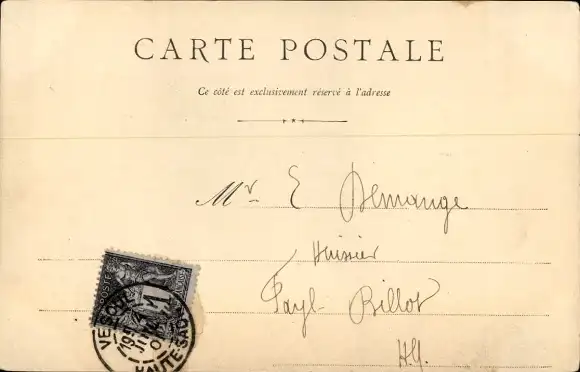 CARTE POSTALE
Ce côté est exclusivement réservé à l'adresse
Mr E Demange
Huissier
Fayl-Billot
HM.
POSTE
HAUTE-SAÔ